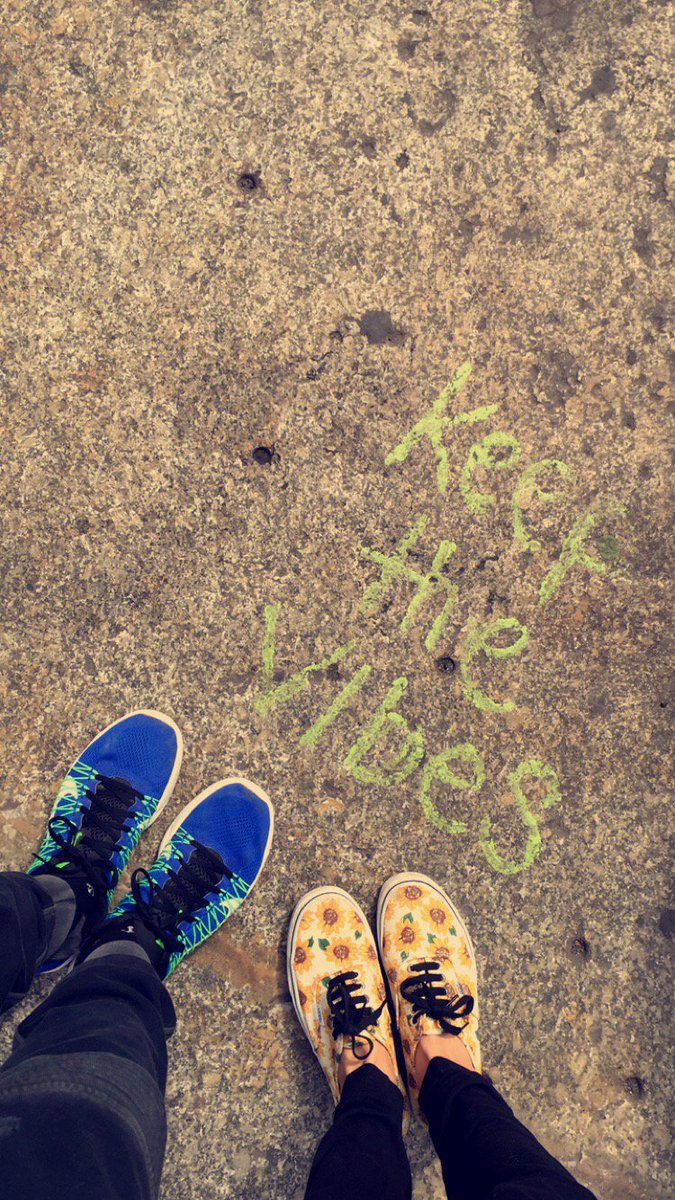 Keep
the
Vibes